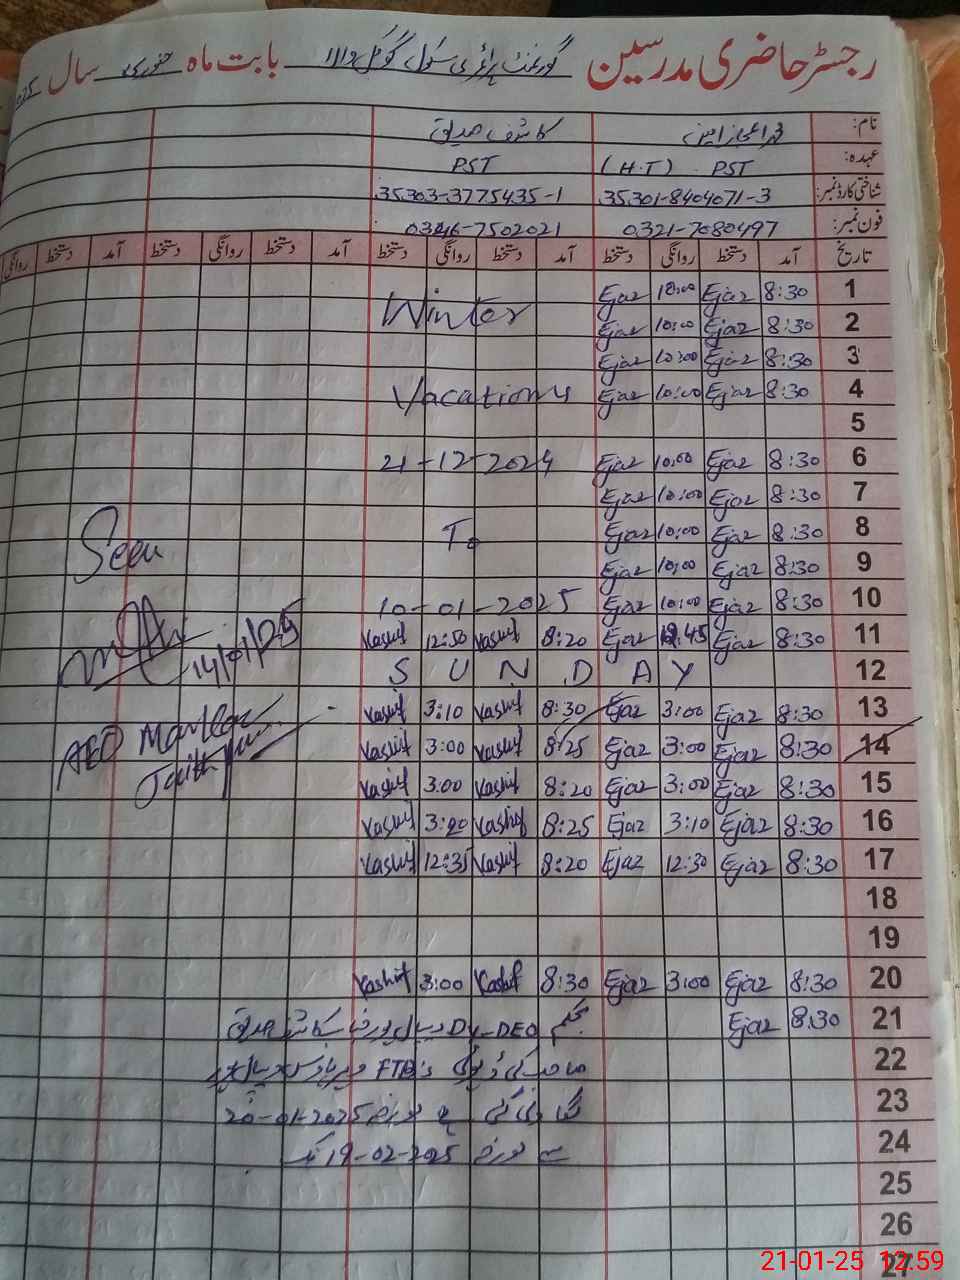 رجسٹر حاضری مدرسین گورنمنٹ پرائمری سکول گوگل 11/1 بابت ماہ جنوری سال 2025
نام: اعجاز امین کاشف صدیق
عہدہ: PST (H.T) PST
شناختی کارڈ نمبر: 35301-8404071-3 35303-3775435-1
فون نمبر: 0321-7080497 0346-7502021
تاریخ آمد دستخط روانگی دستخط آمد دستخط روانگی دستخط آمد دستخط روانگی دستخط آمد دستخط روانگی
1 8:30 Ejaz 10:00 Ejaz
Winter
2 8:30 Ejaz 10:00 Ejaz
3 8:30 Ejaz 10:00 Ejaz
4 8:30 Ejaz 10:00 Ejaz Vacations
5
6 8:30 Ejaz 10:00 Ejaz 21-12-2024
7 8:30 Ejaz 10:00 Ejaz
8 8:30 Ejaz 10:00 Ejaz To
9 8:30 Ejaz 10:00 Ejaz
10 8:30 Ejaz 10:00 Ejaz 10-01-2025
11 8:30 Ejaz 12:45 Ejaz 8:20 Kashif 12:50 Kashif
12 SUNDAY
13 8:30 Ejaz 3:00 Ejaz 8:30 Kashif 3:10 Kashif
14 8:30 Ejaz 3:00 Ejaz 8:25 Kashif 3:00 Kashif
15 8:30 Ejaz 3:00 Ejaz 8:20 Kashif 3:00 Kashif
16 8:30 Ejaz 3:10 Ejaz 8:25 Kashif 3:20 Kashif
17 8:30 Ejaz 12:30 Ejaz 8:20 Kashif 12:35 Kashif
18
19
20 8:30 Ejaz 3:00 Ejaz 8:30 Kashif 3:00 Kashif
21 8:30 Ejaz بحکم Dy-DEO کاشف صدیق
22 صاحب کی ڈیوٹی FTB's
23 لگا دی گئی ہے مورخہ 20-01-2025
24 سے مورخہ 19-02-2025 تک
25
26
27
Seen
14/01/25
AEO
21-01-25 12:59